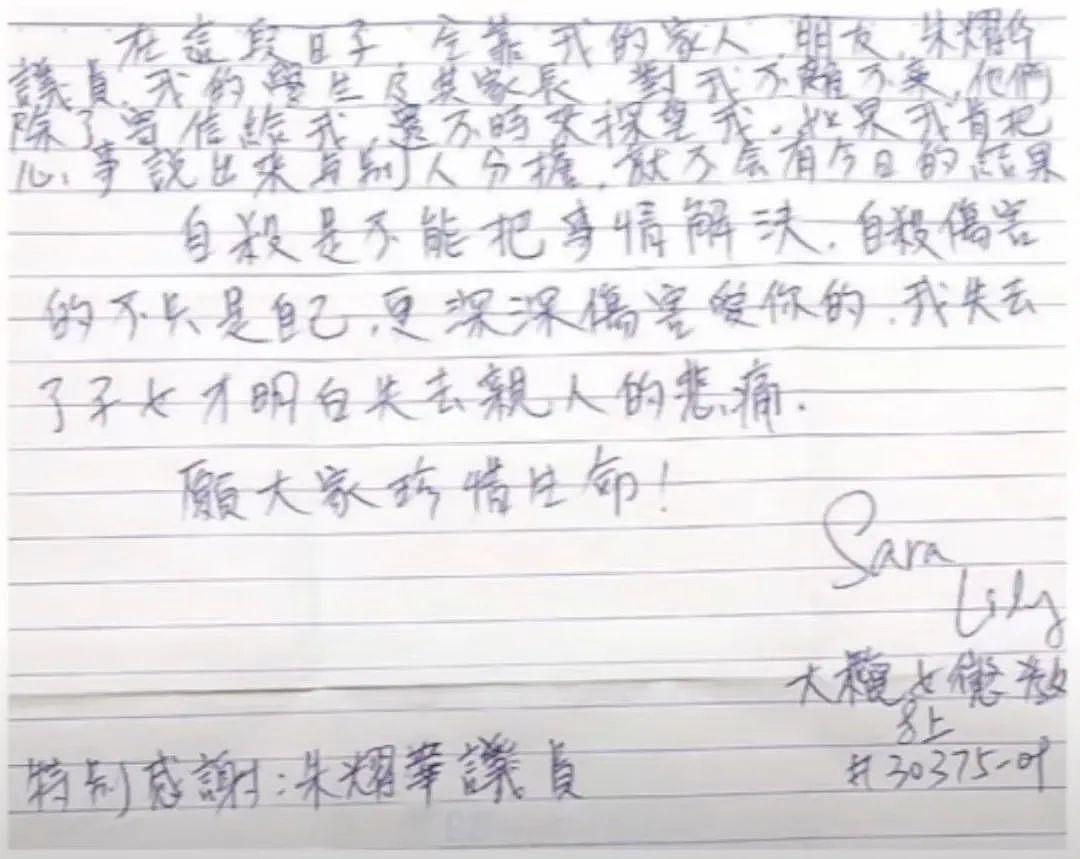 在這段日子 全靠我的家人 朋友 朱耀华
議員 我的學生及其家長 對我不離不棄,他們
除了寄信給我,還不時來探望我.如果我肯把
心事說出來與別人分擔,就不会有今日的結果
自殺是不能把事情解決.自殺傷害
的不只是自己,更深深傷害愛你的.我失去
了子女才明白失去親人的悲痛.
願大家珍惜生命!
Sara
Lily
大欖女懲教
上
#30375-09
特别感謝:朱耀華議員